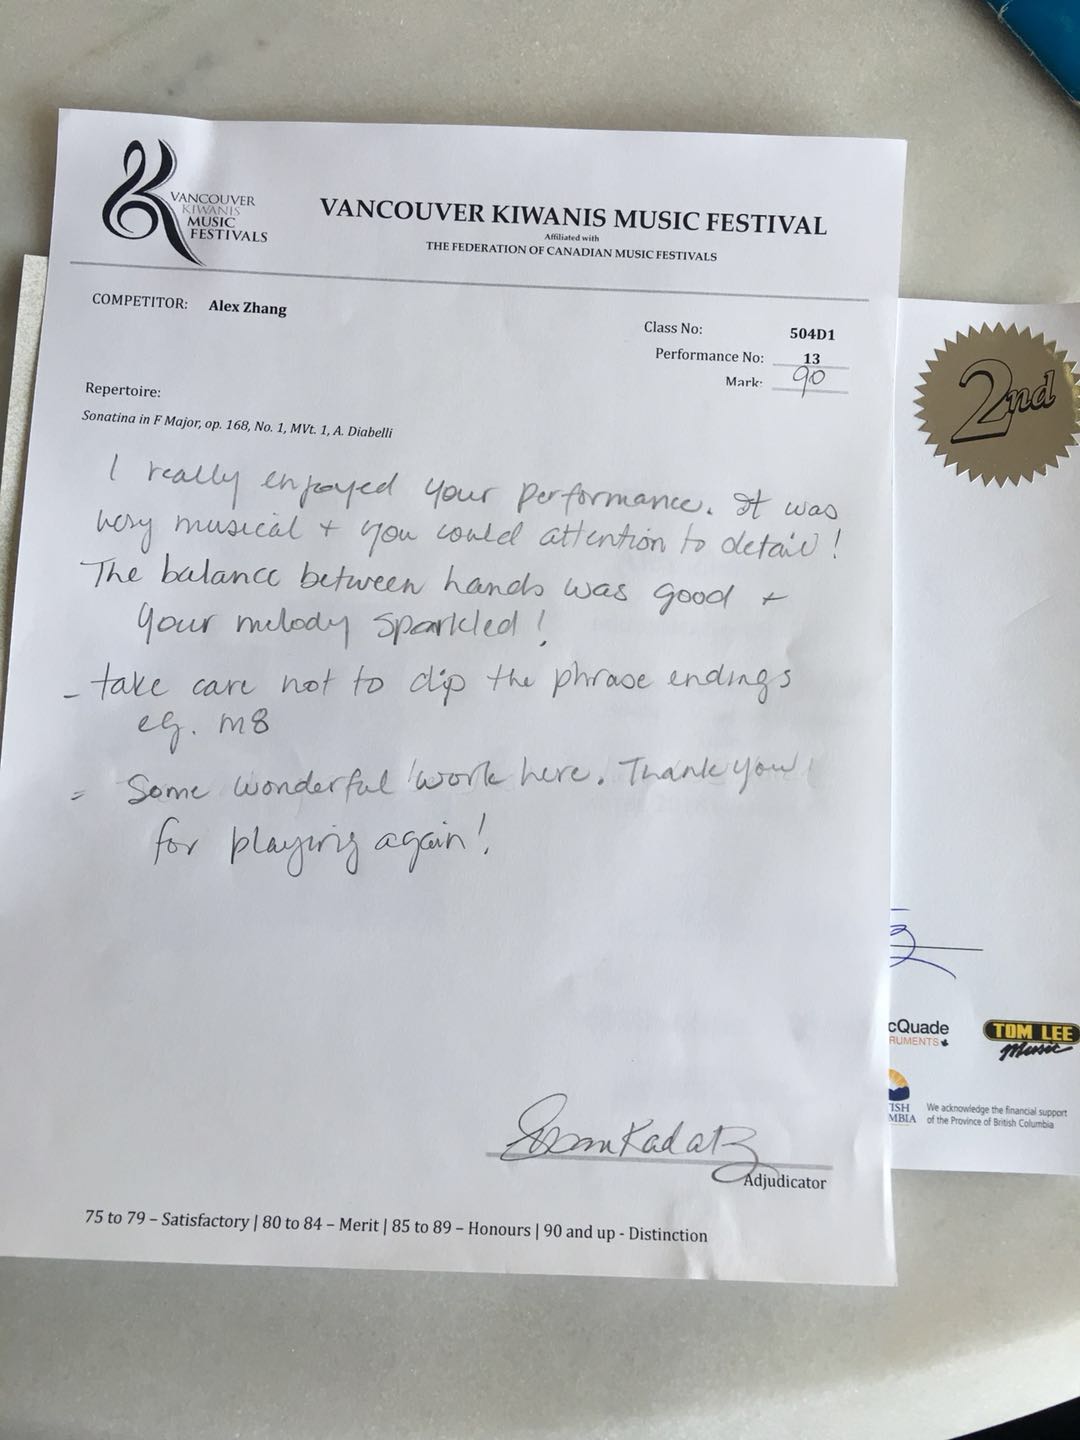 VANCOUVER
KIWANIS
MUSIC
FESTIVALS
VANCOUVER KIWANIS MUSIC FESTIVAL
Affiliated with
THE FEDERATION OF CANADIAN MUSIC FESTIVALS
COMPETITOR: Alex Zhang
Class No: 504D1
Performance No: 13
Mark: 90
Repertoire:
Sonatina in F Major, op. 168, No. 1, MVt. 1, A. Diabelli
I really enjoyed your performance. It was
very musical + you could attention to detail!
The balance between hands was good +
your melody sparkled!
- take care not to clip the phrase endings
eg. m8
= Some wonderful work here. Thank you
for playing again!
Adjudicator
75 to 79 – Satisfactory | 80 to 84 – Merit | 85 to 89 – Honours | 90 and up - Distinction
2nd
cQuade
RUMENTS
TOM LEE
Music
TISH
MBIA
We acknowledge the financial support
of the Province of British Columbia